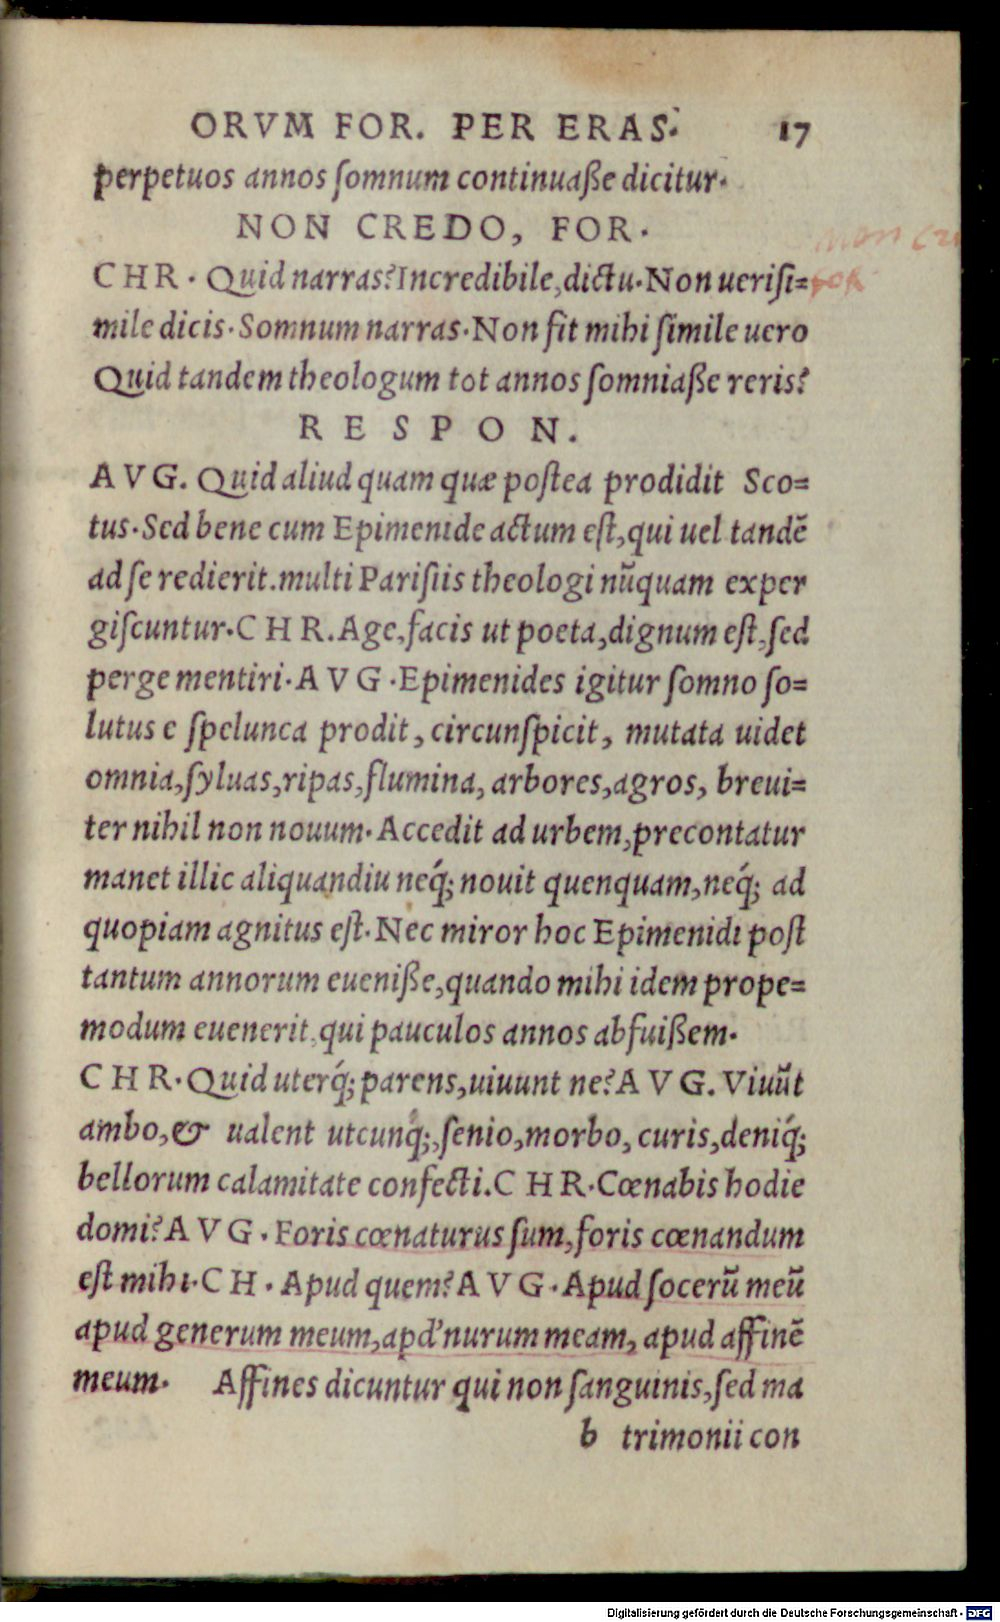 ORVM FOR. PER ERAS. 17
perpetuos annos ſomnum continuaſſe dicitur.
NON CREDO, FOR.
CHR. Quid narras? Incredibile, dictu. Non ueriſi=
mile dicis. Somnum narras. Non fit mihi ſimile uero
Quid tandem theologum tot annos ſomniaſſe reris?
RESPON.
AVG. Quid aliud quam quæ poſtea prodidit Sco=
tus. Sed bene cum Epimenide actum eſt, qui uel tandē
ad ſe redierit. multi Pariſiis theologi nūquam exper
giſcuntur. CHR. Age, facis ut poeta, dignum eſt, ſed
perge mentiri. AVG. Epimenides igitur ſomno ſo=
lutus e ſpelunca prodit, circunſpicit, mutata uidet
omnia, ſyluas, ripas, flumina, arbores, agros, breui=
ter nihil non nouum. Accedit ad urbem, precontatur
manet illic aliquandiu neq́; nouit quenquam, neq́; ad
quopiam agnitus eſt. Nec miror hoc Epimenidi poſt
tantum annorum eueniſſe, quando mihi idem prope=
modum euenerit, qui pauculos annos abfuiſſem.
CHR. Quid uterq́; parens, uiuunt ne? AVG. Viuūt
ambo, & ualent utcunq́;, ſenio, morbo, curis, deniq́;
bellorum calamitate confecti. CHR. Cœnabis hodie
domi? AVG. Foris cœnaturus ſum, foris cœnandum
eſt mihi. CH. Apud quem? AVG. Apud ſocerū meū
apud generum meum, apd' nurum meam, apud affinē
meum. Affines dicuntur qui non ſanguinis, ſed ma
b trimonii con
non cre
for
Digitalisierung gefördert durch die Deutsche Forschungsgemeinschaft - DFG